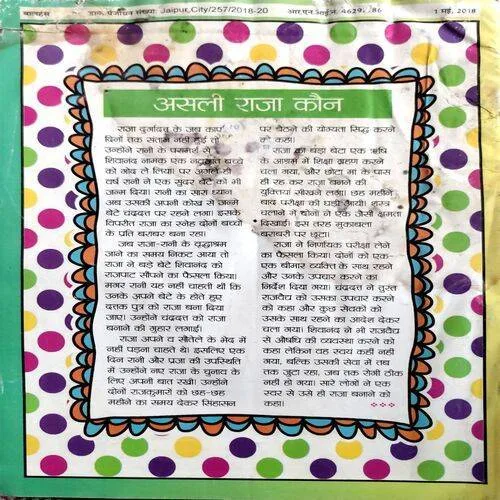 बालहंस डाक पंजीयन संख्या: Jaipur City/257/2018-20 आर.एन.आई.नं. 1 मई, 2018
असली राजा कौन
राजा दुर्गादत्त के जब काफी
दिनों तक संतानें नहीं हुई तो
उन्होंने रानी के परामर्श से
शिवानंद नामक एक नवजात बच्चे
को गोद ले लिया। पर अगले ही
वर्ष रानी ने एक सुंदर बेटे को भी
जन्म दिया। रानी का सारा ध्यान
अब उसकी अपनी कोख से जन्म
बेटे चंद्रदत्त पर रहने लगा। इसके
विपरीत राजा का स्नेह दोनों बच्चों
के प्रति बराबर बना रहा।
जब राजा-रानी के वृद्धाश्रम
जाने का समय निकट आया तो
राजा ने बड़े बेटे शिवानंद को
राजपाट सौंपने का फैसला किया।
मगर रानी यह नहीं चाहती थी कि
उनके अपने बेटे के होते हुए
दत्तक पुत्र को राजा बना दिया
जाए। उन्होंने चंद्रदत्त को राजा
बनाने की गुहार लगाई।
राजा अपने व सौतेले के भेद में
नहीं पड़ना चाहते थे। इसलिए एक
दिन रानी और प्रजा की उपस्थिति
में उन्होंने नाए राजा के चुनाव के
लिए अपनी बात रखी। उन्होंने
दोनों राजकुमारों को छह-छह
महीने का समय देकर सिंहासन
पर बैठने की योग्यता सिद्ध करने
को कहा।
राजा का बड़ा बेटा एक ऋषि
के आश्रम में शिक्षा ग्रहण करने
चला गया, और छोटा मां के पास
ही रह कर राजा बनाने की
युक्तियां सीखने लगा। छह महीने
बाद परीक्षा की घड़ी आयी। शस्त्र
चलाने में दोनों ने एक जैसी क्षमता
दिखाई। इस तरह मुकाबला
बराबरी पर छूटा।
राजा ने निर्णायक परीक्षा लेने
का फैसला किया। दोनों को एक-
एक बीमार व्यक्ति के साथ रहने
और उनके उपचार करने का
निर्देश दिया गया। चंद्रदत्त ने तुरंत
राजवैद्य को उसका उपचार करने
को कहा और कुछ सेवकों को
उसके साथ रहने का आदेश देकर
चला गया। शिवानंद ने भी राजवैद्य
से औषधि की व्यवस्था करने को
कहा लेकिन वह स्वयं कहीं नहीं
गया, बल्कि उसकी सेवा में तब
तक जुटा रहा, जब तक रोगी ठीक
नहीं हो गया। सारे लोगों ने एक
स्वर से उसे ही राजा बनाने को
कहा।